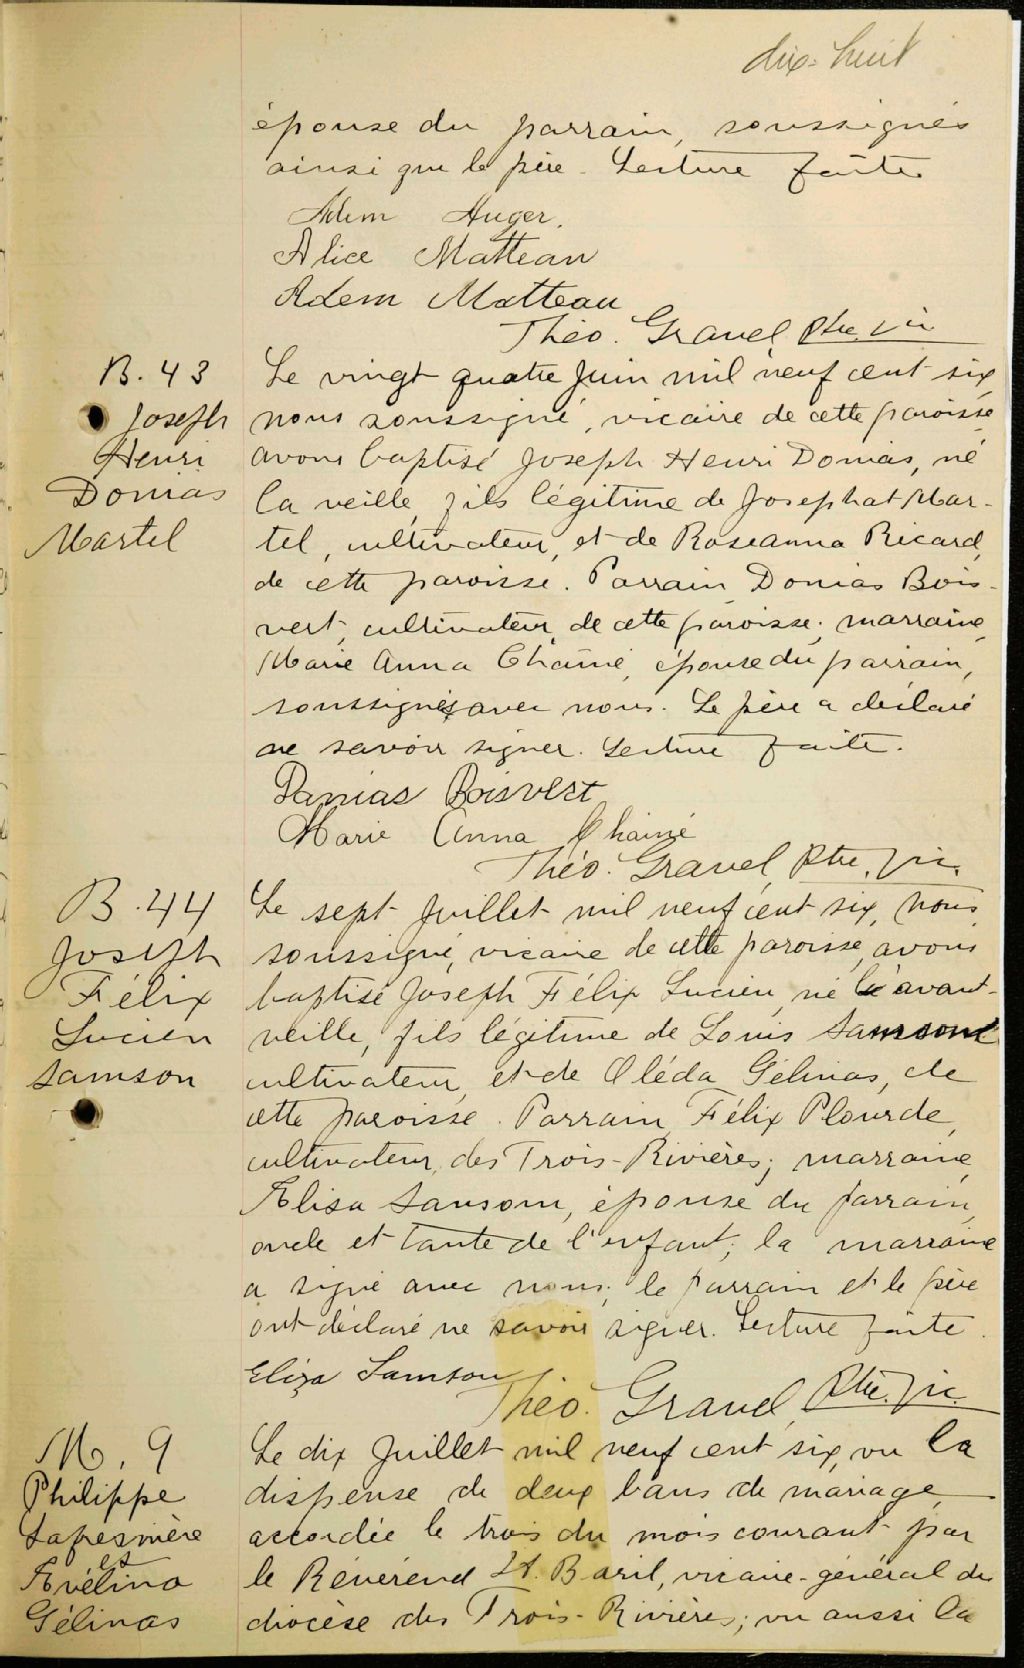 dix-huit
épouse du parrain, soussignés
ainsi que le père. Lecture faite.
Adem Auger.
Alice Matteau
Adem Matteau
Théo. Gravel Ptre. Vic
B. 43
Joseph
Henri
Donias
Martel
Le vingt quatre Juin mil neuf cent six,
nous soussigné, vicaire de cette paroisse
avons baptisé Joseph Henri Donias, né
la veille, fils légitime de Josephat Mar-
tel, cultivateur, et de Roseanna Ricard,
de cette paroisse. Parrain Donias Bois-
vert, cultivateur, de cette paroisse; marraine,
Marie Anna Chaîné, épouse du parrain,
soussignés avec nous. Le père a déclaré
ne savoir signer. Lecture faite.
Danias Boisvert
Marie Anna Chainé
Théo. Gravel, Ptre. Vic.
B. 44
Joseph
Félix
Lucien
Samson
Le sept Juillet mil neuf cent six, nous
soussigné, vicaire de cette paroisse, avons
baptisé Joseph Félix Lucien, né l'avant-
veille, fils légitime de Louis Samson
cultivateur, et de Oléda Gélinas, de
cette paroisse. Parrain, Félix Plourde,
cultivateur, des Trois-Rivières; marraine,
Elisa Samson, épouse du parrain,
oncle et tante de l'enfant; la marraine
a signé avec nous; le parrain et le père
ont déclaré ne savoir signer. Lecture faite.
Eliza Samson
Théo. Gravel, Ptre. Vic.
M. 9
Philippe
Lafresnière
et
Evélina
Gélinas
Le dix Juillet mil neuf cent six, vu la
dispense de deux bans de mariage
accordée le trois du mois courant par
le Révérend H. Baril, vicaire-général du
diocèse des Trois-Rivières; vu aussi la